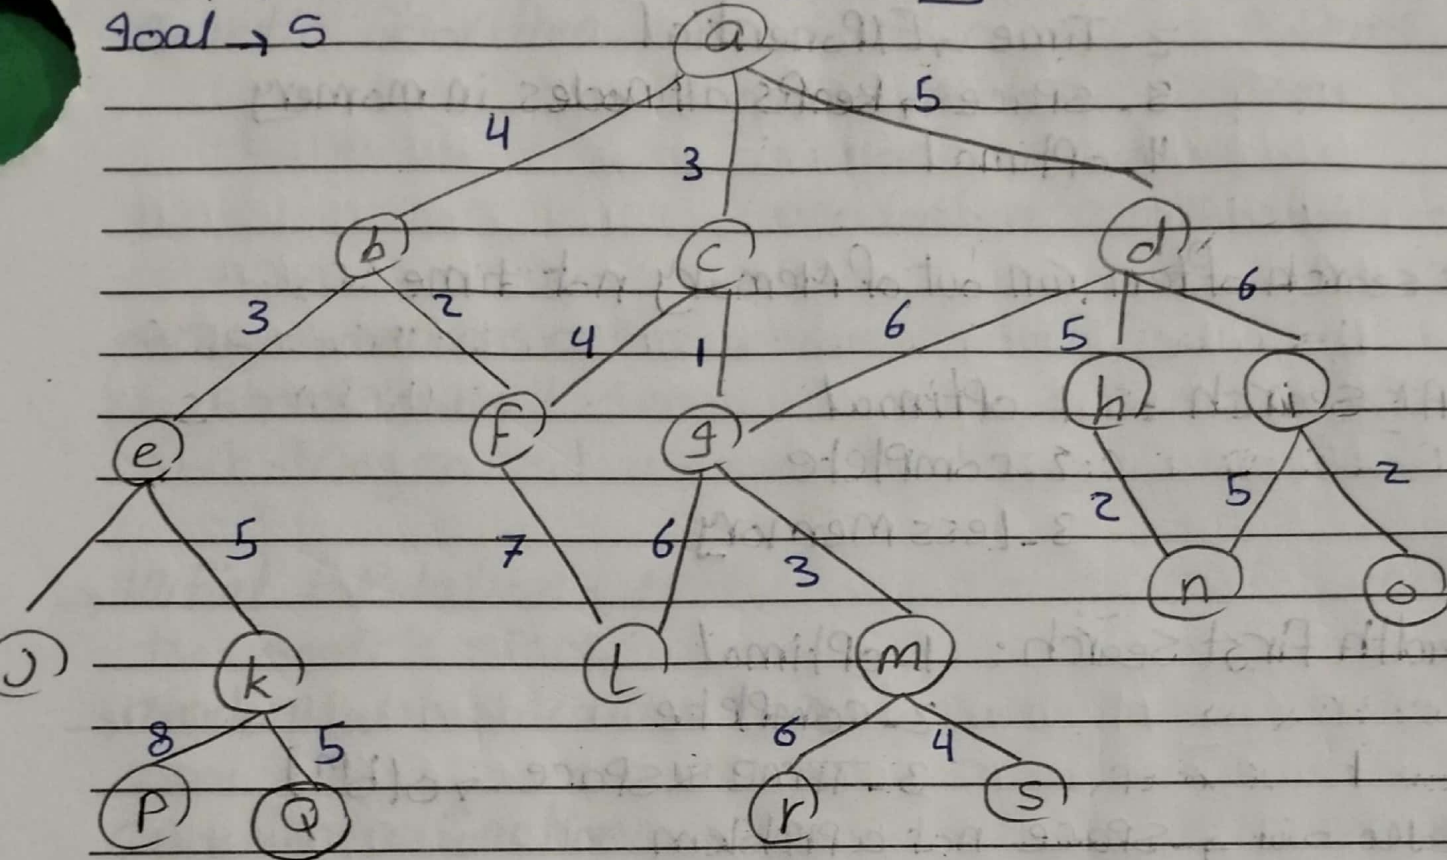 Goal → S
a
4 3 5
b c d
3 2 4 1 6 5 6
e f g h i
5 7 6 3 2 5 2
J k l m n o
8 5 6 4
P Q r S